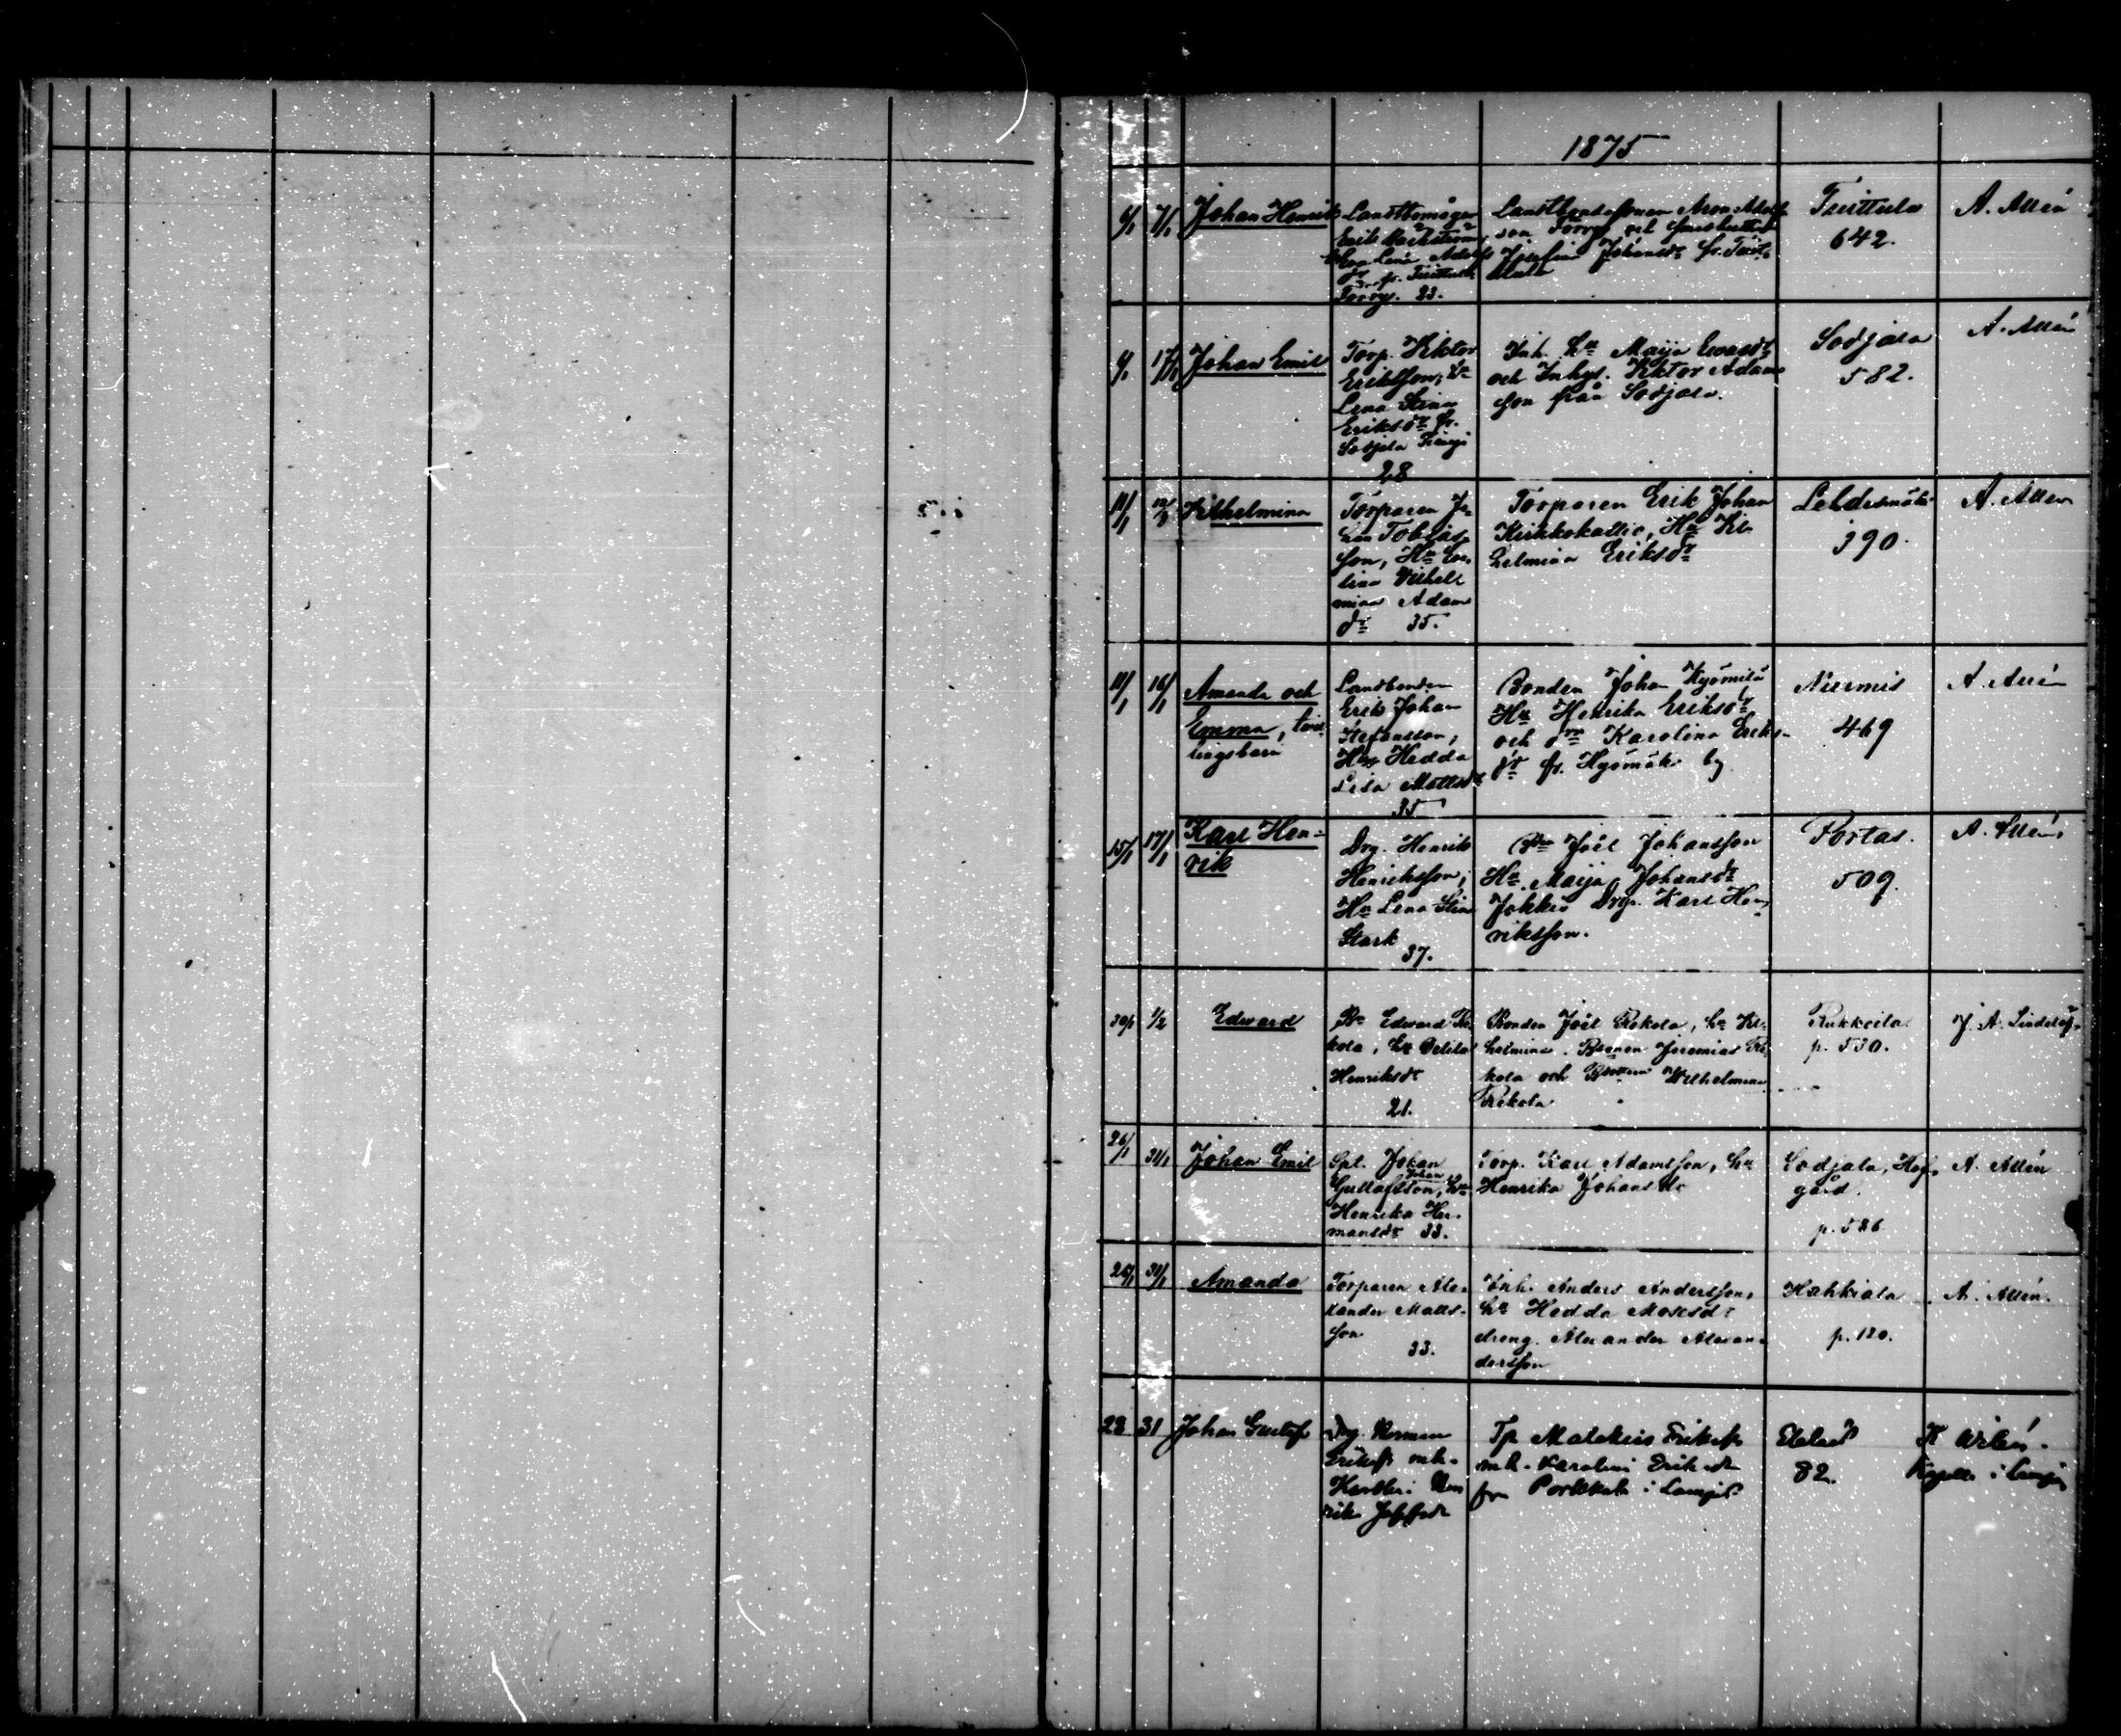 1875
6/1 7/1 Johan Henrik
Landtbon
Erik
Lena Adolfs
dr fr. Teuttula
Torrgs. 23.
Landtbondesonen Aron Adolf
son Torrgs och
Josefina Johansdr fr.
Teuttula
642.
A. Allén
6/1 17/1 Johan Emil
Torp. Viktor
Eriksson, hu
Lena Stina
Eriksdr fr.
Sodjala
28
Inh. hu Maija Evasdr
och Inhys. Viktor Adams
son från Sodjala.
Sodjala
582.
A. Allén
11/1 Vilhelmina
Torparen Jo
han Tobias
son, Hu Eve
lina Vilhel
mina Adams
dr 35.
Torparen Erik Johan
Kirkkokallio, Hu Vil
helmina Eriksdr
390.
A. Allén
11/1 16/1 Amanda och
Emma, tvil
lingsbarn
Landbonden
Erik Johan
Stefansson,
Hu Hedda
Lisa Mattsdr
35
Bonden Johan Hyömäki
Hu Henrika Eriksdr
och Karolina Eriks
dr fr. Hyömäki by
Niemis
469
A. Allén
15/1 17/1 Karl Hen-
rik
Drg. Henrik
Henriksson,
Hu Lena Stina
Stark
37.
Joël Johansson
Hu Maija Johansdr
Jokkis Drg. Karl Hen
riksson.
Portas.
509.
A. Allén
30/1 1/2 Edward
Bn Edward Re
kola, hu
Henriksdr
21.
Bonden Joël Rekola, hu Vil
helmina. Bsonen Jeremias Re
kola och Wilhelmina
Rekola
Rukkoila
p. 530.
J. A. Lindelöf
26/1 31/1 Johan Emil
Spl. Johan
Johan
Gustafsson, hu
Henrika Her
mansdr 33.
Torp. Karl Adamsson, hu
Henrika Johansdr
Sodjala, Hof
gård.
p. 586
A. Allén
26/1 31/1 Amanda
Torparen Ale
xander Matts-
son
33.
Inh. Anders Andersson,
hu Hedda Mosesdr
dreng. Alexander Alexan
dersson
Hahkiala
p. 120.
A. Allén.
28 31 Johan Gustaf
Drg. Herman
Eriksss m.h.
Tp Malakias Erikss
m.h. Karolina Eriksdr
fra i Lampis
82.
K Wilén.
i